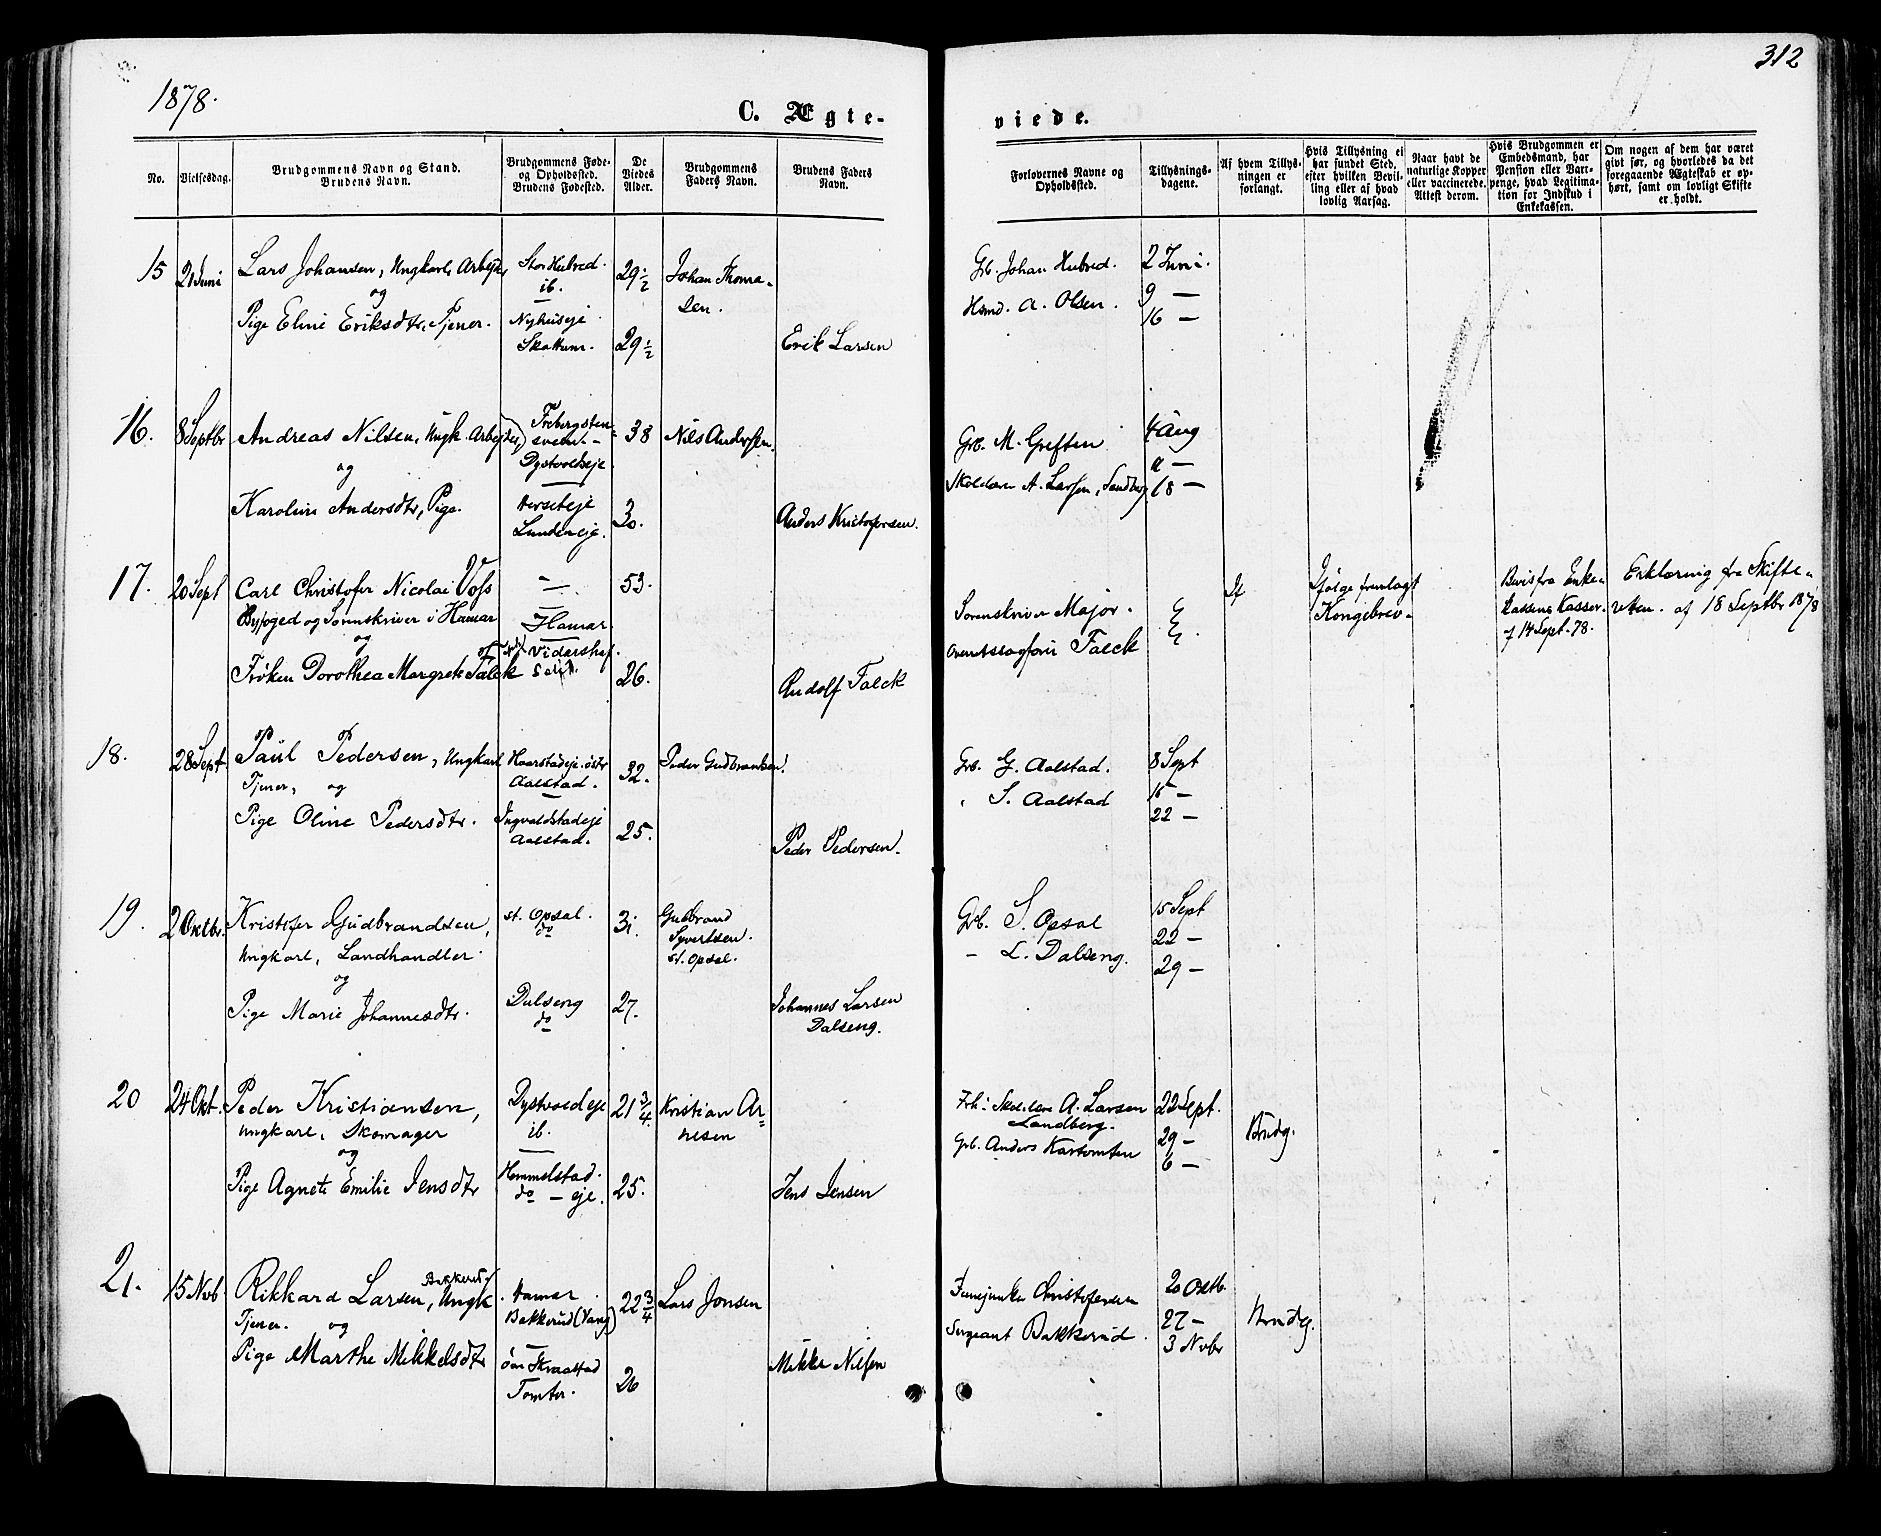 1878.
312
C. Ægte-
viede.
No.
Vielsesdag.
Brudgommens Navn og Stand.
Brudens Navn.
Brudgommens Føde-
og Opholdssted.
Brudens Fødested.
De
Viedes
Alder.
Brudgommens
Faders Navn.
Brudens Faders
Navn.
Forlovernes Navne og
Opholdssted.
Tillysnings-
dagene.
Af hvem Tillys-
ningen er
forlangt.
Hvis Tillysning ei
har fundet Sted,
efter hvilken Bevil-
ling eller af hvad
lovlig Aarsag.
Naar havt de
naturlige Kopper
eller vaccinerede.
Attest derom.
Hvis Brudgommen er
Embedsmand, har
Pension eller Vart-
penge, hvad Legitima-
tion for Indskud i
Enkekassen.
Om nogen af dem har været
givt før, og hvorledes da det
foregaaende Ægteskab er op-
hørt, samt om lovligt Skifte
er holdt.
15
21 Juni
Lars Johansen, Ungkarl, Arbejder
og
Pige Eline Eriksdtr, Tjener.
Stor Hubred.
ib.
Nyhuseje
Skattum.
29 1/2
29 1/2
Johan Thoma-
sen.
Erik Larsen
Grb. Johan Hubred.
Hsmd. A. Olsen.
2 Juni.
9 —
16 —
16.
8 Septbr
Andreas Nilsen, Ungk. Arbejder,
og
Karoline Andersdtr, Pige.
Dystvoldseje
Lundeneje.
38
30.
Nils Andersen.
Anders Kristofersen.
Grb. M. Greften
Skolelærer A. Larsen, Sandberg
4 Aug
18 —
17.
20 Sept
Carl Christofer Nicolai Voss
Byfoged og Sorenskriver i Hamar
og
Frøken Dorothea Margrete Falck
—
Hamar.
Vidarshof.
53.
26.
Rudolf Falck
Sorenskriver Major.
Falck
Ifølge fremlagt
Kongebrev.
Bevis fra Enke-
kassens Kasser.
af 14 Sept. 78.
Erklæring fra Skifte-
retten. af 18 Septbr 1878
18.
28 Sept.
Paul Pedersen, Ungkarl
Tjener, og
Pige Oline Pedersdtr.
Haarstadeje. østr
Aalstad.
Ingvaldstadeje
Aalstad.
32.
25.
Peder Gudbrandsen.
Peder Pedersen.
Grb. G. Aalstad.
" S. Aalstad
8 Sept
15 —
22 —
19.
2 Oktbr.
Kristofer Gudbrandsen,
Ungkarl, Landhandler
og
Pige Marie Johannesdtr.
st. Opsal.
do
Dalseng
do
31.
27.
Gudbrand
Syvertsen.
st. Opsal.
Johannes Larsen
Dalseng.
Grb. S. Opsal
- L. Dalseng.
15 Sept
22 —
29 —
20
24 Okt.
Peder Kristiansen,
Ungkarl, Skomager
og
Pige Agnete Emilie Jensdtr
Dystvoldeje
ib.
Hommelstad.
do — eje.
21 3/4
25.
Kristian Ar-
nesen
Jens Jensen
A. Larsen
Sandberg.
Grb. Anders Kartomten
22 Sept.
29 —
6 —
Brudg.
21.
15 Nvb.
Rikkard Larsen, Bakkerud, Ungk
Tjener. og
Pige Marthe Mikkelsdtr
Hamar
Bakkerud (Vang)
Tomter.
22 3/4
26
Lars Jonsen
Mikkel Nilsen
Christofersen
Sergeant Bakkerud.
20 Oktb.
27 —
3 Nvbr
Brudg.